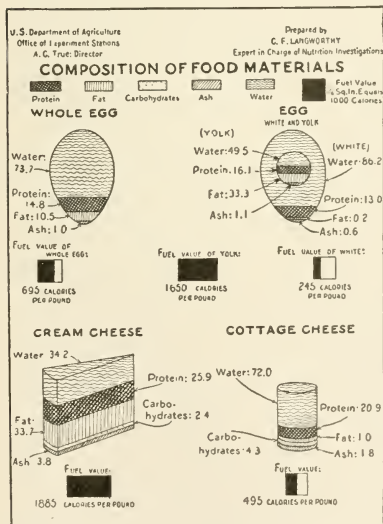 U.S. Department of Agriculture
Office of Experiment Stations
A.C. True: Director
Prepared by
C. F. LANGWORTHY
Expert in Charge of Nutrition Investigations
COMPOSITION OF FOOD MATERIALS
Protein
Fat
Carbohydrates
Ash
Water
Fuel Value
Sq. In. Equals
1000 Calories
WHOLE EGG
Water:
73.7
Protein:
14.8
Fat: 10.5
Ash: 1.0
FUEL VALUE OF
WHOLE EGG:
695 CALORIES
PER POUND
EGG
WHITE AND YOLK
(YOLK)
Water: 49.5
Protein: 16.1
Fat: 33.3
Ash: 1.1
(WHITE)
Water: 86.2
Protein: 13.0
Fat: 0.2
Ash: 0.6
FUEL VALUE OF YOLK:
1650 CALORIES
PER POUND
FUEL VALUE OF WHITE:
245 CALORIES
PER POUND
CREAM CHEESE
Water 34.2
Protein: 25.9
Carbo-
hydrates: 2.4
Fat:
33.7
Ash 3.8
FUEL VALUE:
1885 CALORIES PER POUND
COTTAGE CHEESE
Water: 72.0
Protein: 20.9
Fat: 1.0
Carbo-
hydrates: 4.3
Ash: 1.8
FUEL VALUE:
495 CALORIES PER POUND